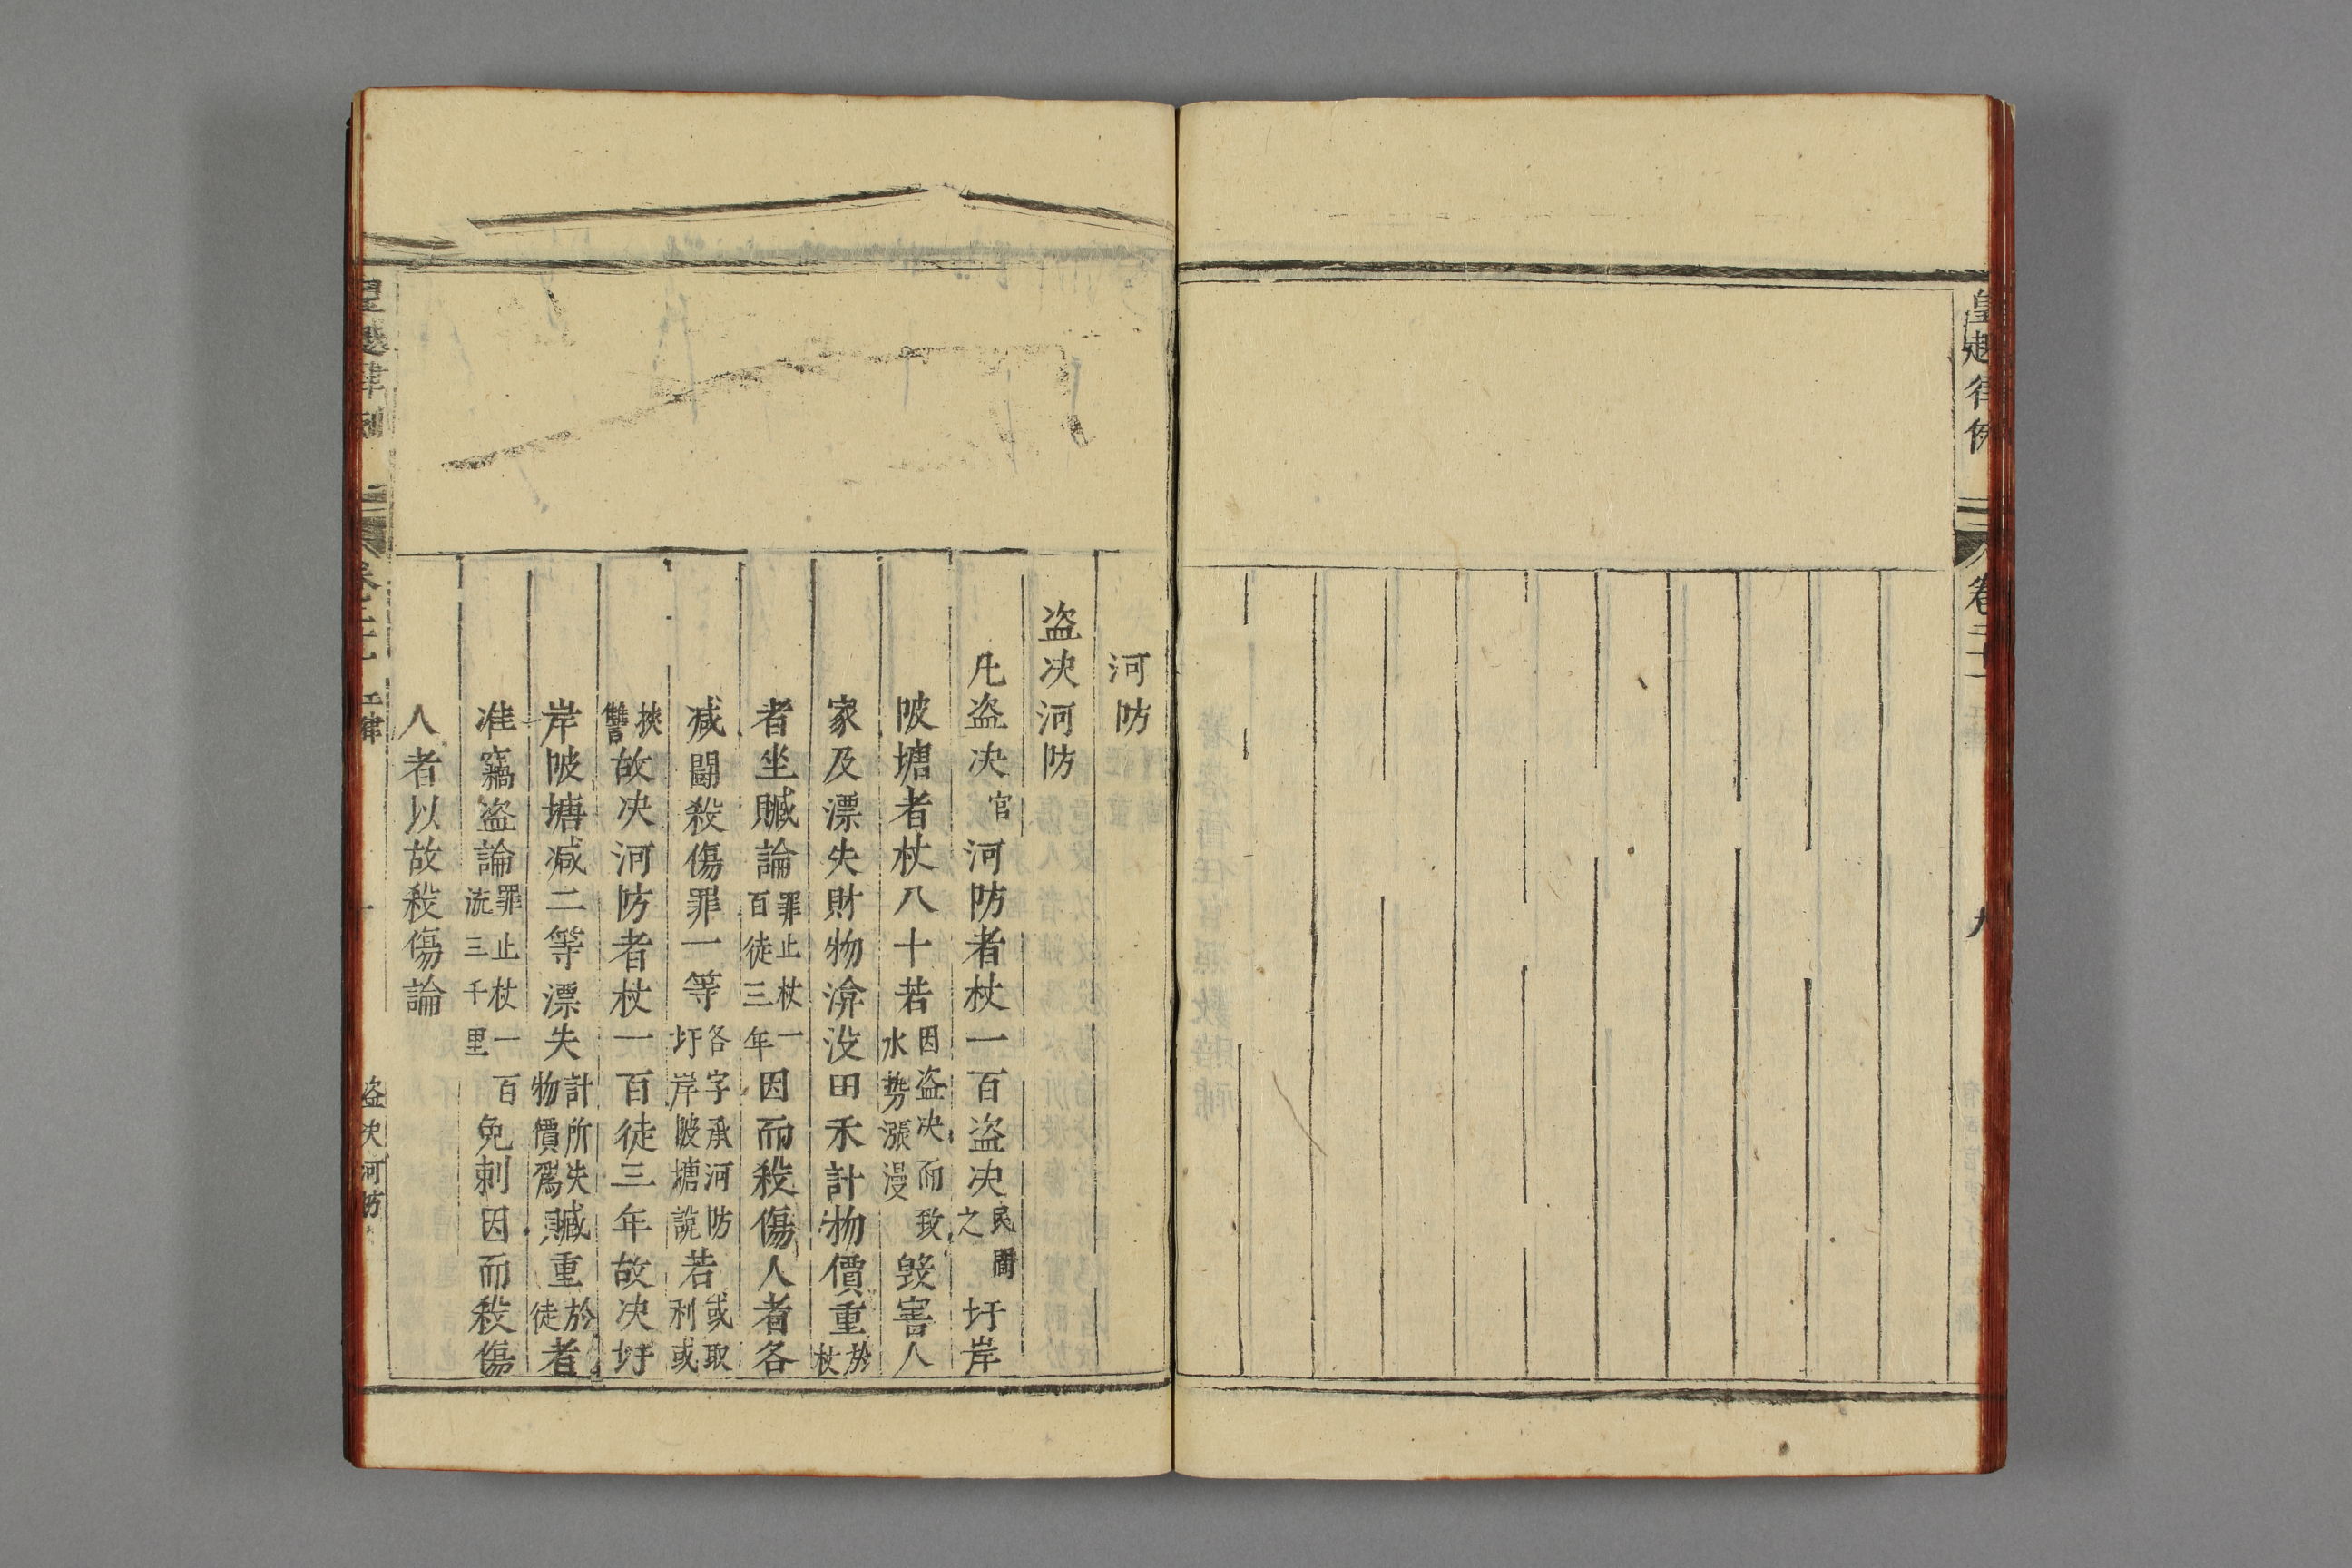 皇越律例
卷二十一
九
河防
盗决河防
凡盗决官河防者杖一百盗决民間之圩岸
陂塘者杖八十若因盗决而致水勢漲漫毁害人
家及漂失財物渰没田禾計物價重於杖
者坐贓論罪止杖一百徒三年因而殺傷人者各
减鬪殺傷罪一等各字承河防圩岸陂塘說若或取利或
挾讐故决河防者杖一百徒三年故决圩
岸陂塘减二等漂失計所失物價爲贓重於徒者
准竊盗論罪止杖一百流三千里免刺因而殺傷
人者以故殺傷論
皇越律例
卷二十一
工律
一
盗决河防